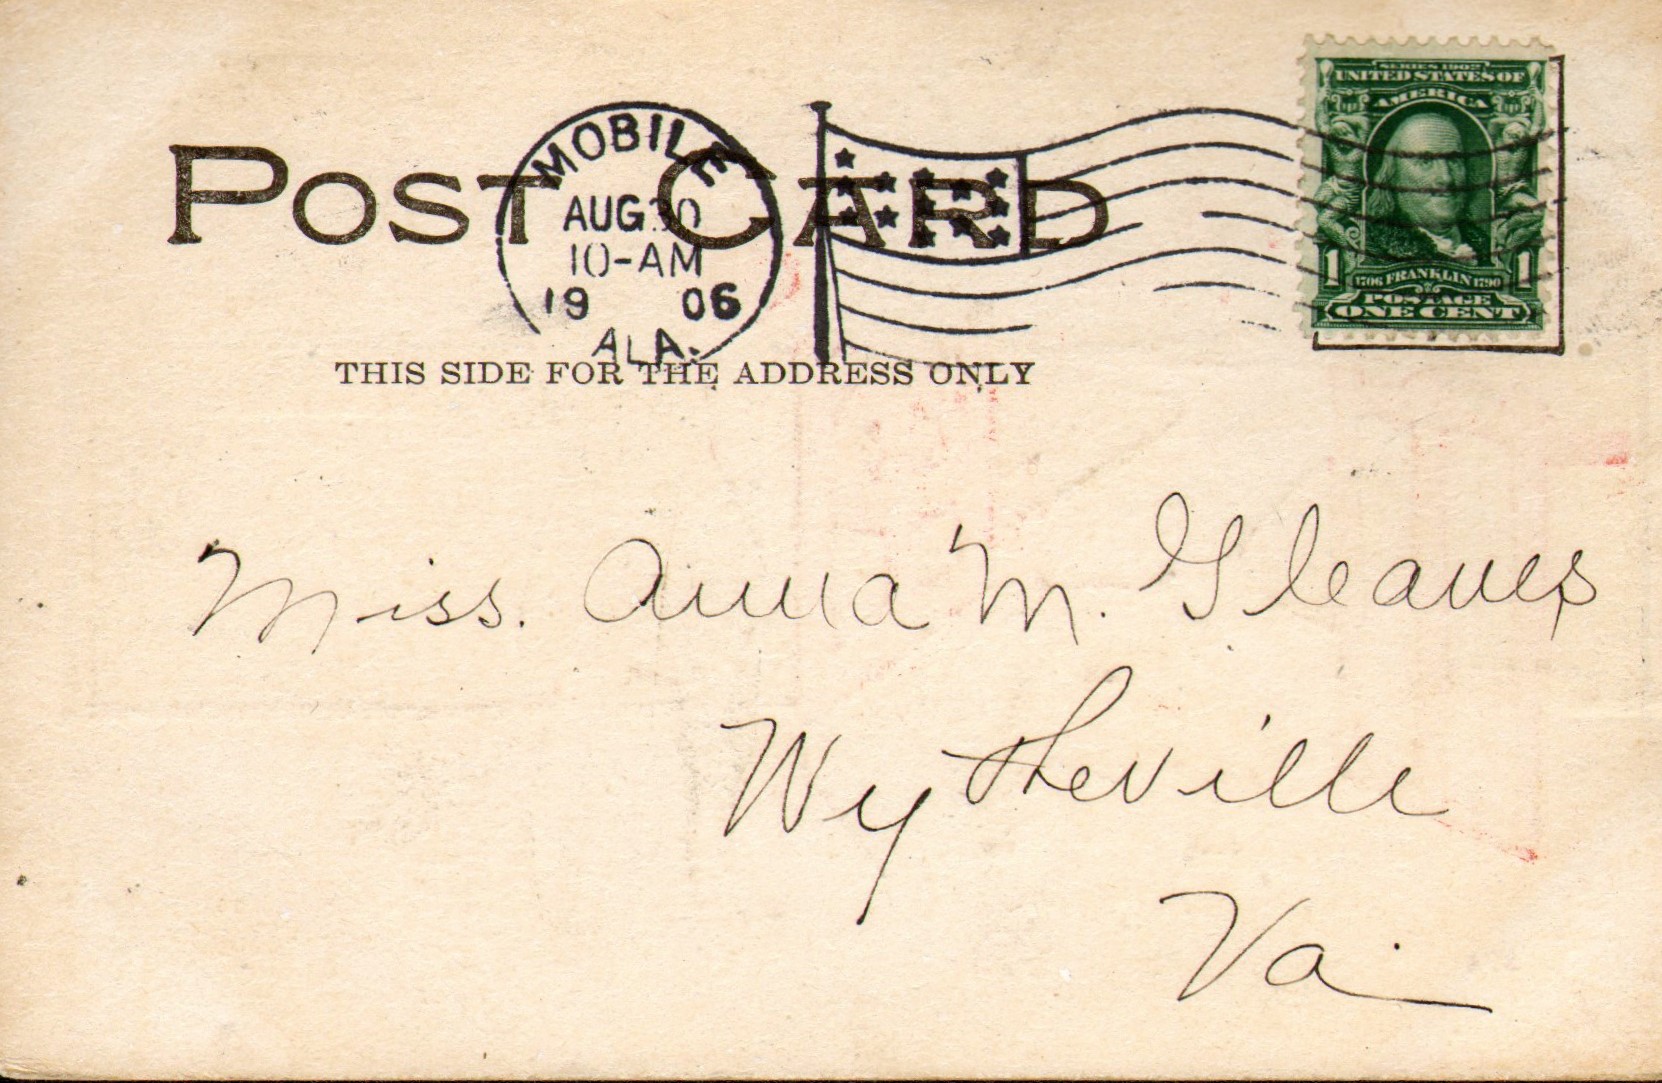 POST CARD
MOBILE
AUG 30
10-AM
1906
ALA.
THIS SIDE FOR THE ADDRESS ONLY
SERIES 1902
UNITED STATES OF
AMERICA
1 1
1706 FRANKLIN 1790
POSTAGE
ONE CENT
Miss. Anna M. Gleaves
Wytheville
Va.